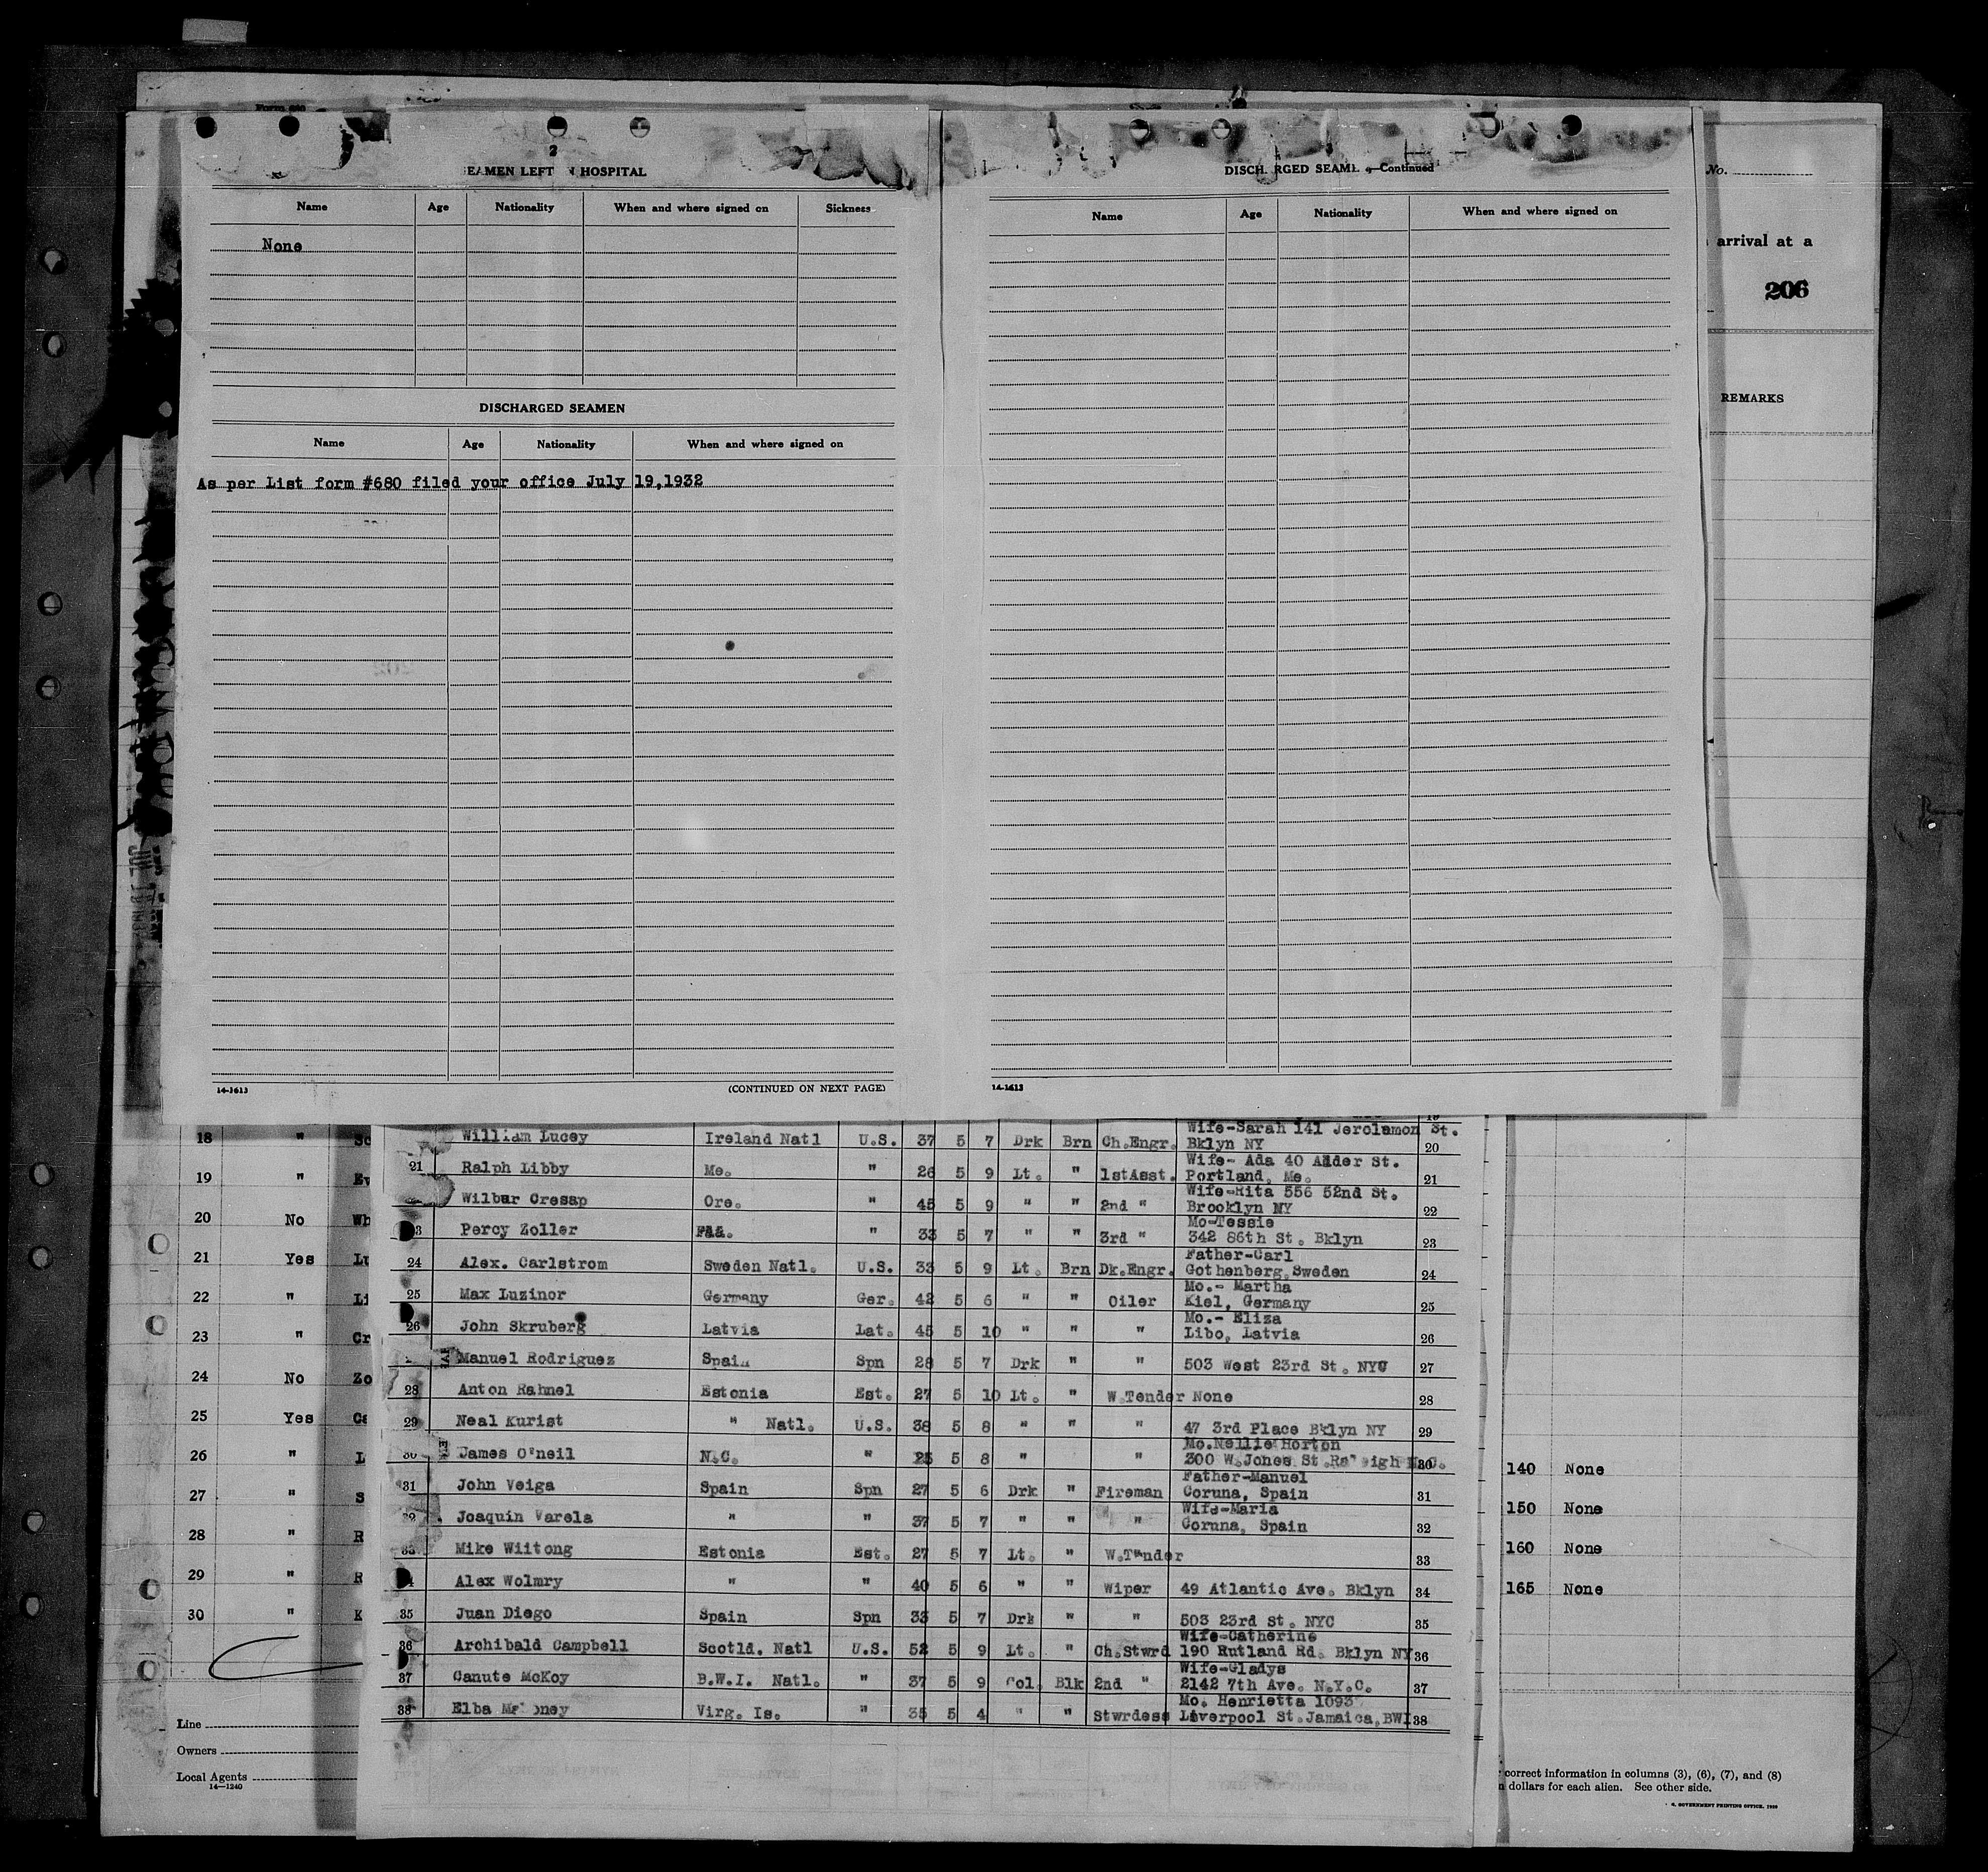 2
SEAMEN LEFT IN HOSPITAL
Name Age Nationality When and where signed on Sickness
None
DISCHARGED SEAMEN
Name Age Nationality When and where signed on
As per List form #680 filed your office July 19,1932
14-1613 (CONTINUED ON NEXT PAGE)
DISCHARGED SEAMEN—Continued
Name Age Nationality When and where signed on
14-1613
No.
arrival at a
206
REMARKS
18 "
19 "
20 No Wh
21 Yes Lu
22 " Li
23 " Cr
24 No Zo
25 Yes Ca
26 " L
27 " S
28 " R
29 " R
30 " K
Line
Owners
Local Agents
14—1240
19
William Lucey Ireland Natl U.S. 37 5 7 Drk Brn Ch.Engr. Wife-Sarah 141 Jerolemon St.
Bklyn NY 20
21 Ralph Libby Me. " 26 5 9 Lt. " 1stAsst. Wife- Ada 40 Alder St.
Portland, Me. 21
Wilbur Cressp Ore. " 45 5 9 " " 2nd " Wife-Rita 556 52nd St.
Brooklyn NY 22
3 Percy Zoller " 33 5 7 " " 3rd " Mo-Tessie
342 86th St. Bklyn 23
24 Alex. Carlstrom Sweden Natl. U.S. 33 5 9 Lt. Brn Dk.Engr. Father-Carl
Gothenberg,Sweden 24
25 Max Luzinor Germany Ger. 42 5 6 " " Oiler Mo.- Martha
Kiel, Germany 25
26 John Skruberg Latvia Lat. 45 5 10 " " " Mo.- Eliza
Libo, Latvia 26
Manuel Rodriguez Spain Spn 28 5 7 Drk " " 503 West 23rd St. NYC 27
28 Anton Rahnel Estonia Est. 27 5 10 Lt. " W.Tender None 28
29 Neal Kurist " Natl. U.S. 38 5 8 " " " 47 3rd Place Bklyn NY 29
30 James O'neil N.C. " 25 5 8 " " Mo.Nellie Horton
300 W.Jones St.Raleigh N.C. 30
31 John Veiga Spain Spn 27 5 6 Drk " Fireman Father-Manuel
Coruna, Spain 31
32 Joaquin Varela " " 37 5 7 " " " Wife-Maria
Coruna, Spain 32
33 Mike Wiitong Estonia Est. 27 5 7 Lt. " W.Tender 33
4 Alex Wolmry " " 40 5 6 " " Wiper 49 Atlantic Ave. Bklyn 34
35 Juan Diego Spain Spn 33 5 7 Drk " " 503 23rd St. NYC 35
36 Archibald Campbell Scotld. Natl U.S. 52 5 9 Lt. " Ch.Stwrd Wife-Catherine
190 Rutland Rd. Bklyn NY 36
37 Canute McKoy B.W.I. Natl. " 37 5 9 Col. Blk 2nd " Wife-Gladys
2142 7th Ave. N.Y.C. 37
38 Elba Virg. Is. " 35 5 4 " " Stwrdess Mo. Henrietta 1093
Liverpool St.Jamaica,BWI 38
140 None
150 None
160 None
165 None
correct information in columns (3), (6), (7), and (8)
dollars for each alien. See other side.
GOVERNMENT PRINTING OFFICE